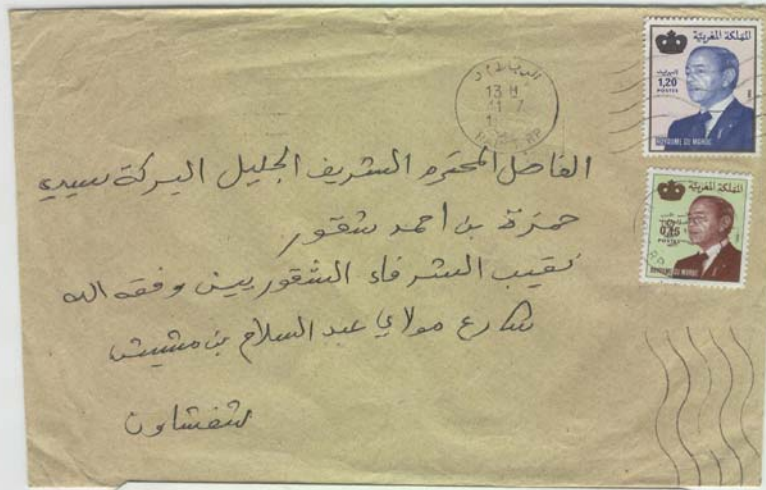 المملكة المغربية
البريد
1,20
POSTES
ROYAUME DU MAROC
المملكة المغربية
0,15
POSTES
ROYAUME DU MAROC
13 H
11 7
الفاضل المحترم الشريف الجليل البركة سيدي
حمزة بن احمد شقور
نقيب الشرفاء الشقوريين وفقه الله
شارع مولاي عبد السلام بن مشيش
شفشاون